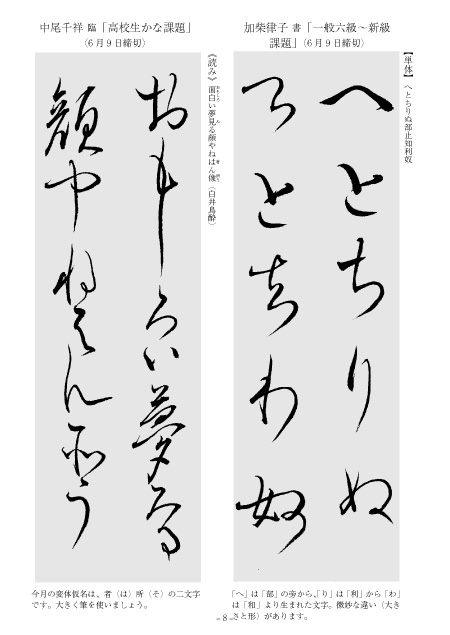 加柴律子 書「一般六級～新級
課題」（6月9日締切）
【単体】へとちりぬ部止知利奴
へとちりぬ
部止知利奴
「へ」は「部」の旁から、「り」は「利」から「わ」
は「和」より生まれた文字。微妙な違い（大き
さと形）があります。
中尾千祥 臨「高校生かな課題」
（6月9日締切）
《読み》面白い夢見る顔やねはん像（白井鳥酔）
おもしろい夢見る
顔やね者ん所う
今月の変体仮名は、者（は）所（そ）の二文字
です。大きく筆を使いましょう。
- 8 -